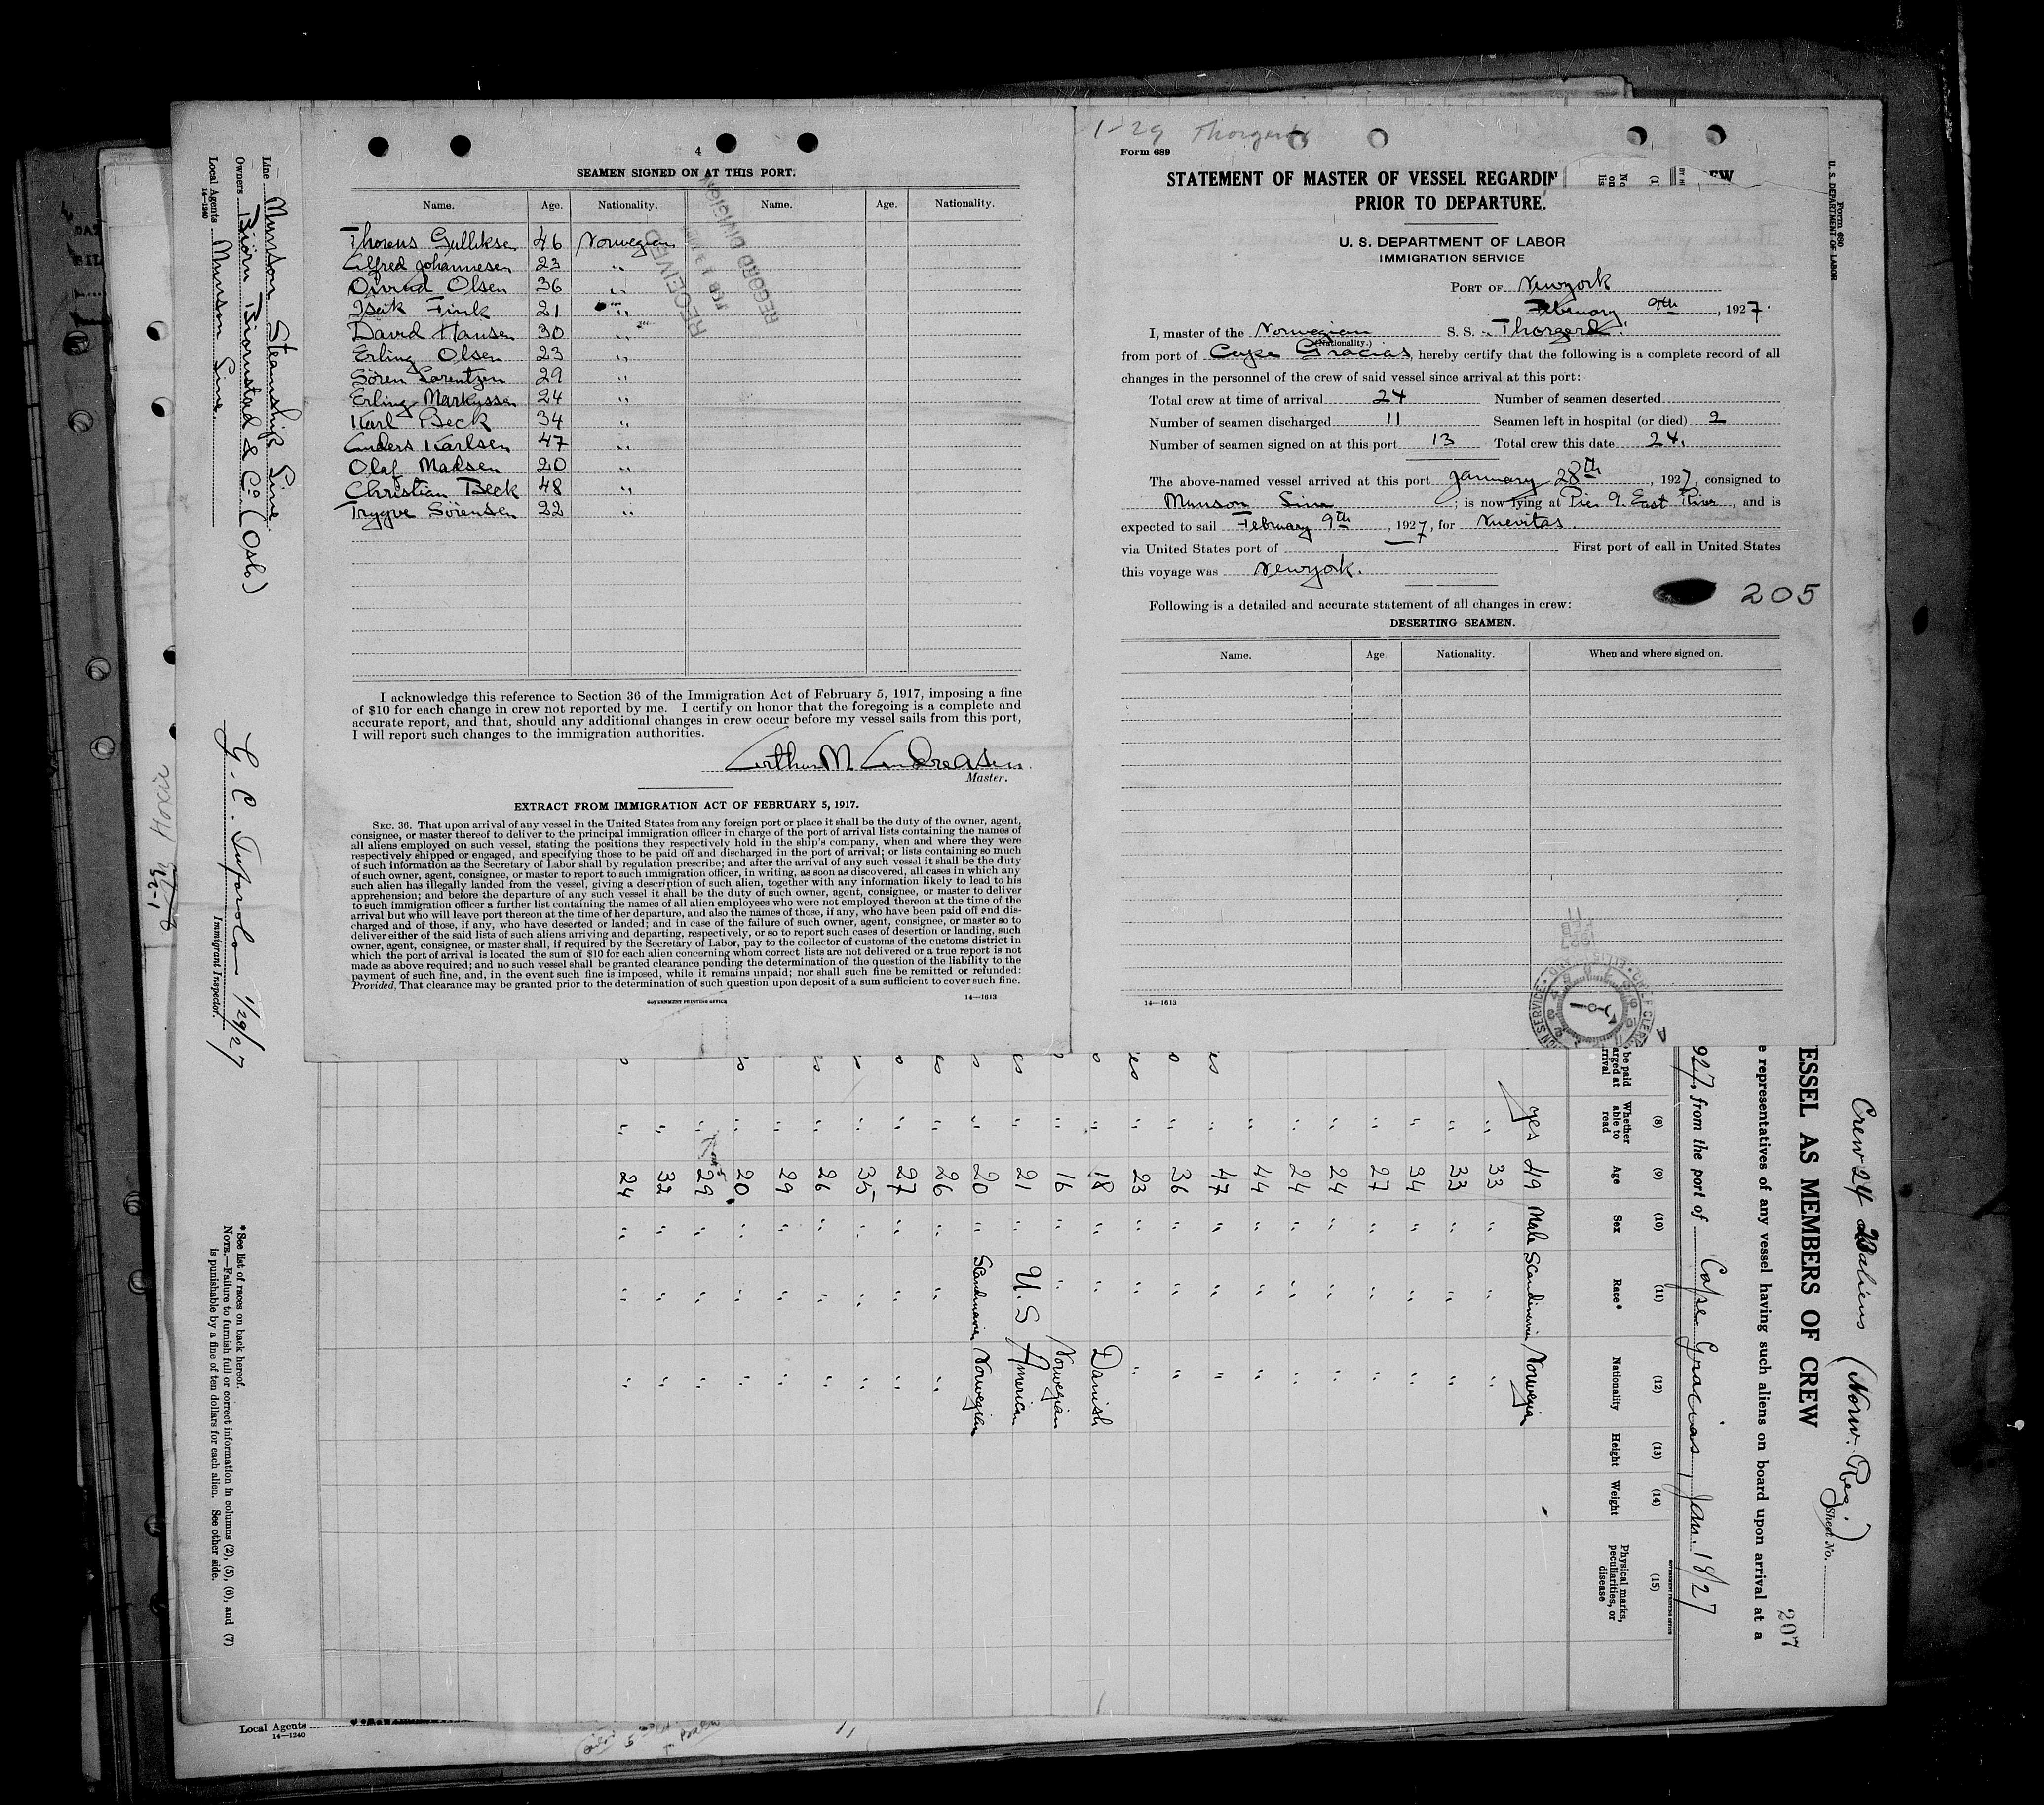 4
SEAMEN SIGNED ON AT THIS PORT.
Name. Age. Nationality. Name. Age. Nationality.
Thorens Gulliksen 46 Norwegian
Alfred Johannesen 23 "
Olsen 36 "
Fink 21 "
David Hansen 30 "
Erling Olsen 23 "
Sören Larentzen 29 "
Erling Markussen 24 "
Karl Beck 34 "
Anders Karlsen 47 "
Olaf Madsen 20 "
Christian Beck 48 "
Trygve Sörensen 22 "
RECEIVED
RECORD DIVISION
I acknowledge this reference to Section 36 of the Immigration Act of February 5, 1917, imposing a fine
of $10 for each change in crew not reported by me. I certify on honor that the foregoing is a complete and
accurate report, and that, should any additional changes in crew occur before my vessel sails from this port,
I will report such changes to the immigration authorities.
Arthur M. Andreasen
Master.
EXTRACT FROM IMMIGRATION ACT OF FEBRUARY 5, 1917.
SEC. 36. That upon arrival of any vessel in the United States from any foreign port or place it shall be the duty of the owner, agent,
consignee, or master thereof to deliver to the principal immigration officer in charge of the port of arrival lists containing the names of
all aliens employed on such vessel, stating the positions they respectively hold in the ship's company, when and where they were
respectively shipped or engaged, and specifying those to be paid off and discharged in the port of arrival; or lists containing so much
of such information as the Secretary of Labor shall by regulation prescribe; and after the arrival of any such vessel it shall be the duty
of such owner, agent, consignee, or master to report to such immigration officer, in writing, as soon as discovered, all cases in which any
such alien has illegally landed from the vessel, giving a description of such alien, together with any information likely to lead to his
apprehension; and before the departure of any such vessel it shall be the duty of such owner, agent, consignee, or master to deliver
to such immigration officer a further list containing the names of all alien employees who were not employed thereon at the time of the
arrival but who will leave port thereon at the time of her departure, and also the names of those, if any, who have been paid off and dis-
charged and of those, if any, who have deserted or landed; and in case of the failure of such owner, agent, consignee, or master so to
deliver either of the said lists of such aliens arriving and departing, respectively, or so to report such cases of desertion or landing, such
owner, agent, consignee, or master shall, if required by the Secretary of Labor, pay to the collector of customs of the customs district in
which the port of arrival is located the sum of $10 for each alien concerning whom correct lists are not delivered or a true report is not
made as above required; and no such vessel shall be granted clearance pending the determination of the question of the liability to the
payment of such fine, and, in the event such fine is imposed, while it remains unpaid; nor shall such fine be remitted or refunded:
Provided, That clearance may be granted prior to the determination of such question upon deposit of a sum sufficient to cover such fine.
GOVERNMENT PRINTING OFFICE 14—1613
1-29 Thorgerd
Form 689
STATEMENT OF MASTER OF VESSEL REGARDIN
PRIOR TO DEPARTURE.
U. S. DEPARTMENT OF LABOR
IMMIGRATION SERVICE
PORT OF Newyork
February 9th, 1927.
I, master of the Norwegian S. S. Thorgerd
(Nationality.)
from port of Cape Gracias, hereby certify that the following is a complete record of all
changes in the personnel of the crew of said vessel since arrival at this port:
Total crew at time of arrival 24 Number of seamen deserted
Number of seamen discharged 11 Seamen left in hospital (or died) 2
Number of seamen signed on at this port 13 Total crew this date 24.
The above-named vessel arrived at this port January 28th, 1927, consigned to
Munson Line; is now lying at Pier 9. East River, and is
expected to sail February 9th, 1927, for Nuevitas.
via United States port of First port of call in United States
this voyage was Newyork.
205
Following is a detailed and accurate statement of all changes in crew:
DESERTING SEAMEN.
Name. Age Nationality. When and where signed on.
14—1613
Form 680
U. S. DEPARTMENT OF LABOR
Crew 24 aliens (Norw. Reg.)
Sheet No.
207
ESSEL AS MEMBERS OF CREW
e representatives of any vessel having such aliens on board upon arrival at a
927, from the port of Cape Gracias, Jan. 18/27
(8) (9) (10) (11) (12) (13) (14) (15)
Whether able to read Age Sex Race* Nationality Height Weight Physical marks, peculiarities, or disease
yes 49 Male Scandinavian Norwegian
" 33 " " "
" 33 " " "
" 34 " " "
" 27 " " "
" 24 " " "
" 24 " " "
" 44 " " "
" 47 " " "
" 36 " " "
" 23 " " "
" 18 " " Danish
" 16 " " Norwegian
" 21 " U.S American
" 20 " Scandinavian Norwegian
" 26 " " "
" 27 " " "
" 35 " " "
" 26 " " "
" 29 " " "
" 20 " " "
" 29 " " "
" 32 " " "
" 24 " " "
*See list of races on back hereof.
NOTE.—Failure to furnish full or correct information in columns (2), (5), (6), and (7)
is punishable by a fine of ten dollars for each alien. See other side.
Line Munson Steamship Line
Owners Biörn Biornstad & Co. (Oslo)
Local Agents Munson Line
14—1240
1/29/27
Immigrant Inspector.
1-29
Hoxie
Local Agents
14—1240